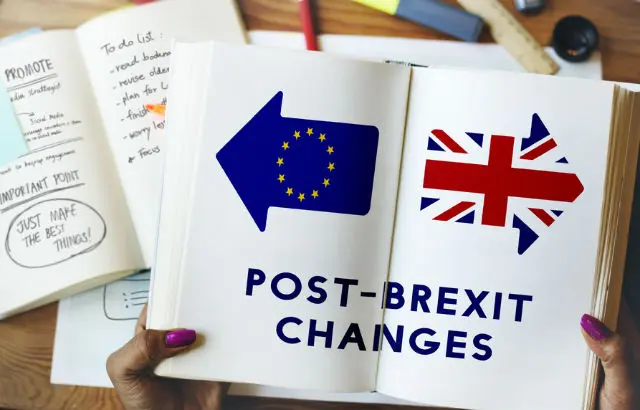 PROMOTE
Media Strategist
IMPORTANT POINT
JUST MAKE
THE BEST
THINGS!
To do list :
- read
- revise older
- plan for
- finish
- worry less
* Focus
POST-BREXIT
CHANGES